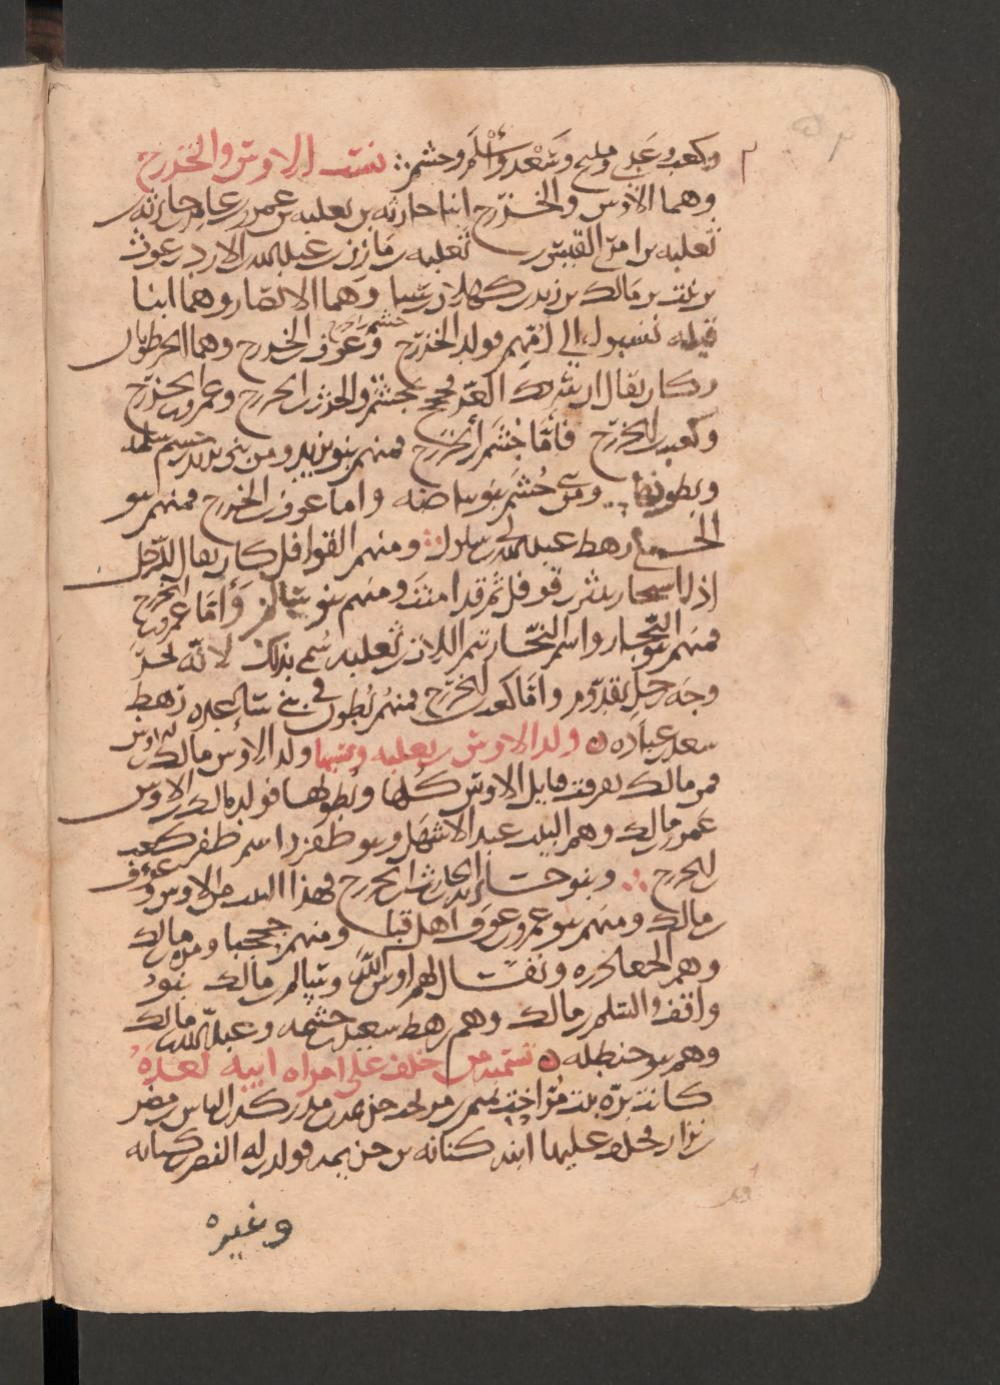 وكعب وعدي ومليح وسعد وأسلم وجشم ∴ نسب الاوس والخزرج
وهما الاوس والخزرج ابنا حارثه بن ثعلبه بن عمرو بن عامر بن حارثه بن
ثعلبه بن امرئ القيس بن ثعلبه بن مازن بن عبد الله بن الازد بن غوث
بن نبت بن مالك بن زيد بن كهلان بن سبا وهما الانصار وهما ابنا
قيله نسبوا الى امهم فولد الخزرج جشم بن الخزرج وعوف بن الخزرج وهما الخرطومان
وكان يقال ان سرك العز فجحجح بجشم والحرث بن الخزرج وعمرو بن الخزرج
وكعب بن الخزرج فأما جشم بن الخزرج فمنهم بنو تزيد ومن بني تزيد بن جشم سلمه
وبطونها ∴ ومن جشم بنو بياضه واما عوف بن الخزرج فمنهم بنو
الحبلى رهط عبد الله بن ابي سلول ∴ ومنهم القوافل كان يقال للرجل
اذا استجار بيثرب قوفل ثم قد امنت ومنهم بنو سالم وأما عمرو بن الخزرج
فمنهم بنو النجار واسم النجار تيم اللات بن ثعلبه سمي بذلك لانه نجر
وجه رجل بقدوم واما كعب بن الخزرج فمنهم بطون في بني ساعده رهط
سعد بن عباده ن ولد الاوس بن ثعلبه ونسبها ولد الاوس مالك بن الاوس
فمن مالك تفرقت قبايل الاوس كلها وبطونها فولد مالك بن الاوس
عمرو بن مالك وهم النبيت عبد الاشهل وبنو ظفر واسم ظفر كعب
بن الخزرج ∴ وبنو حارثه بن الحارث بن الخزرج فهذا النبيت من الاوس وعوف
بن مالك ومنهم بنو عمرو بن عوف اهل قبا ومنهم جحجبا ومره بن مالك
وهم الجعادره ويقال لهم اوس الله وسالم بن مالك بنو
واقف والسلم بن مالك وهم رهط سعد بن خيثمه وعبد الله بن مالك
وهم بنو حنظله ن تسميه من خلف على امراه ابيه بعده
كانت بره بنت مر اخت تميم بن مر تحت خزيمه بن مدركه بن الياس بن مضر بن
نزار فخلف عليها ابنه كنانه بن خزيمه فولدت له النضر بن كنانه
وغيره